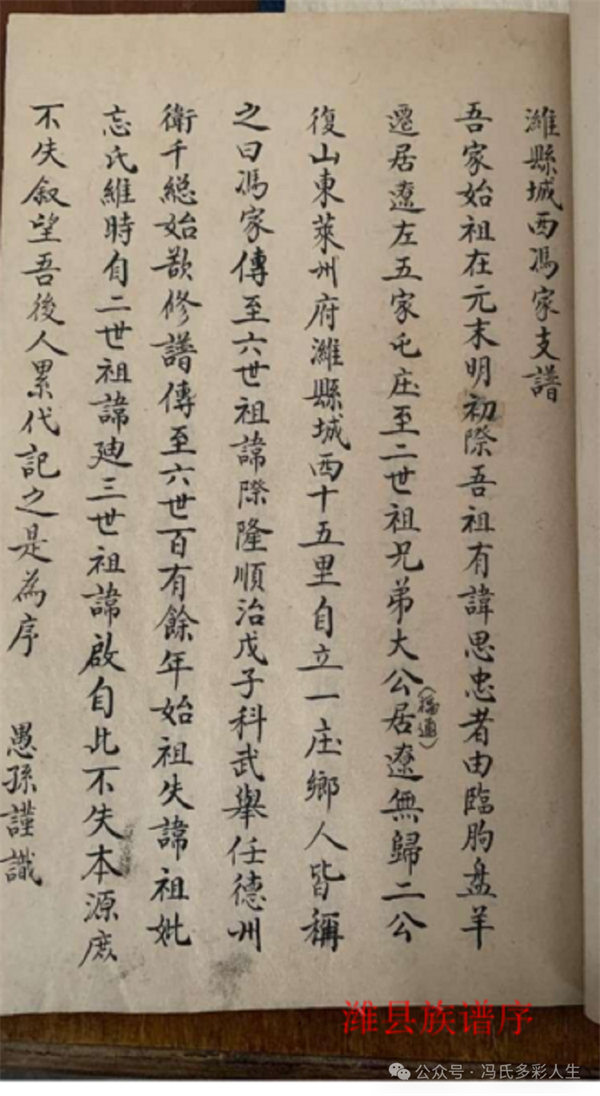 濰縣城西馮家支譜
吾家始祖在元末明初際吾祖有諱思忠者由臨朐盘羊
遷居遼左五家屯庄至二世祖兄弟大公居遼無歸二公
(福通)
復山東萊州府濰縣城西十五里自立一庄鄉人皆稱
之曰馮家傳至六世祖諱際隆順治戊子科武舉任德州
衛千総始歖修譜傳至六世百有餘年始祖失諱祖妣
忘氏維時自二世祖諱廸三世祖諱啟自此不失本源庶
不失叙望吾後人累代記之是為序
愚孫謹識
潍县族谱序
公众号·冯氏多彩人生